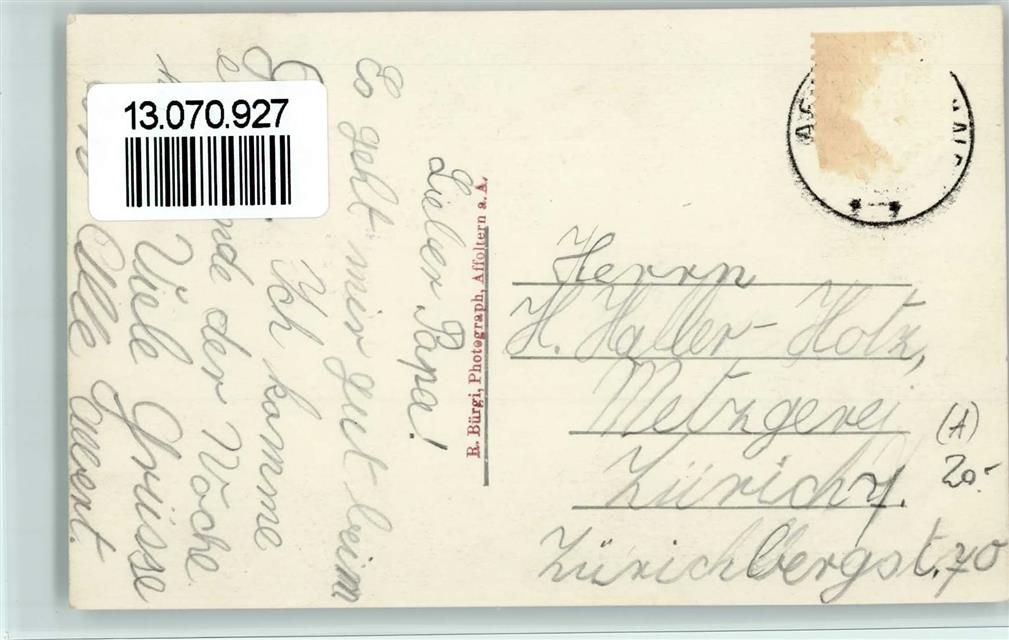 13.070.927
Lieber Papa!
Es geht mir gut beim
G
Ich komme
Ende der Woche
Viele Grüsse
Alle
R. Bürgi, Photograph, Affoltern a. A.
Herrn
H. Haller-Hotz,
Metzgerei
Zürich 7.
Zürichbergst. 70
(A)
20.-